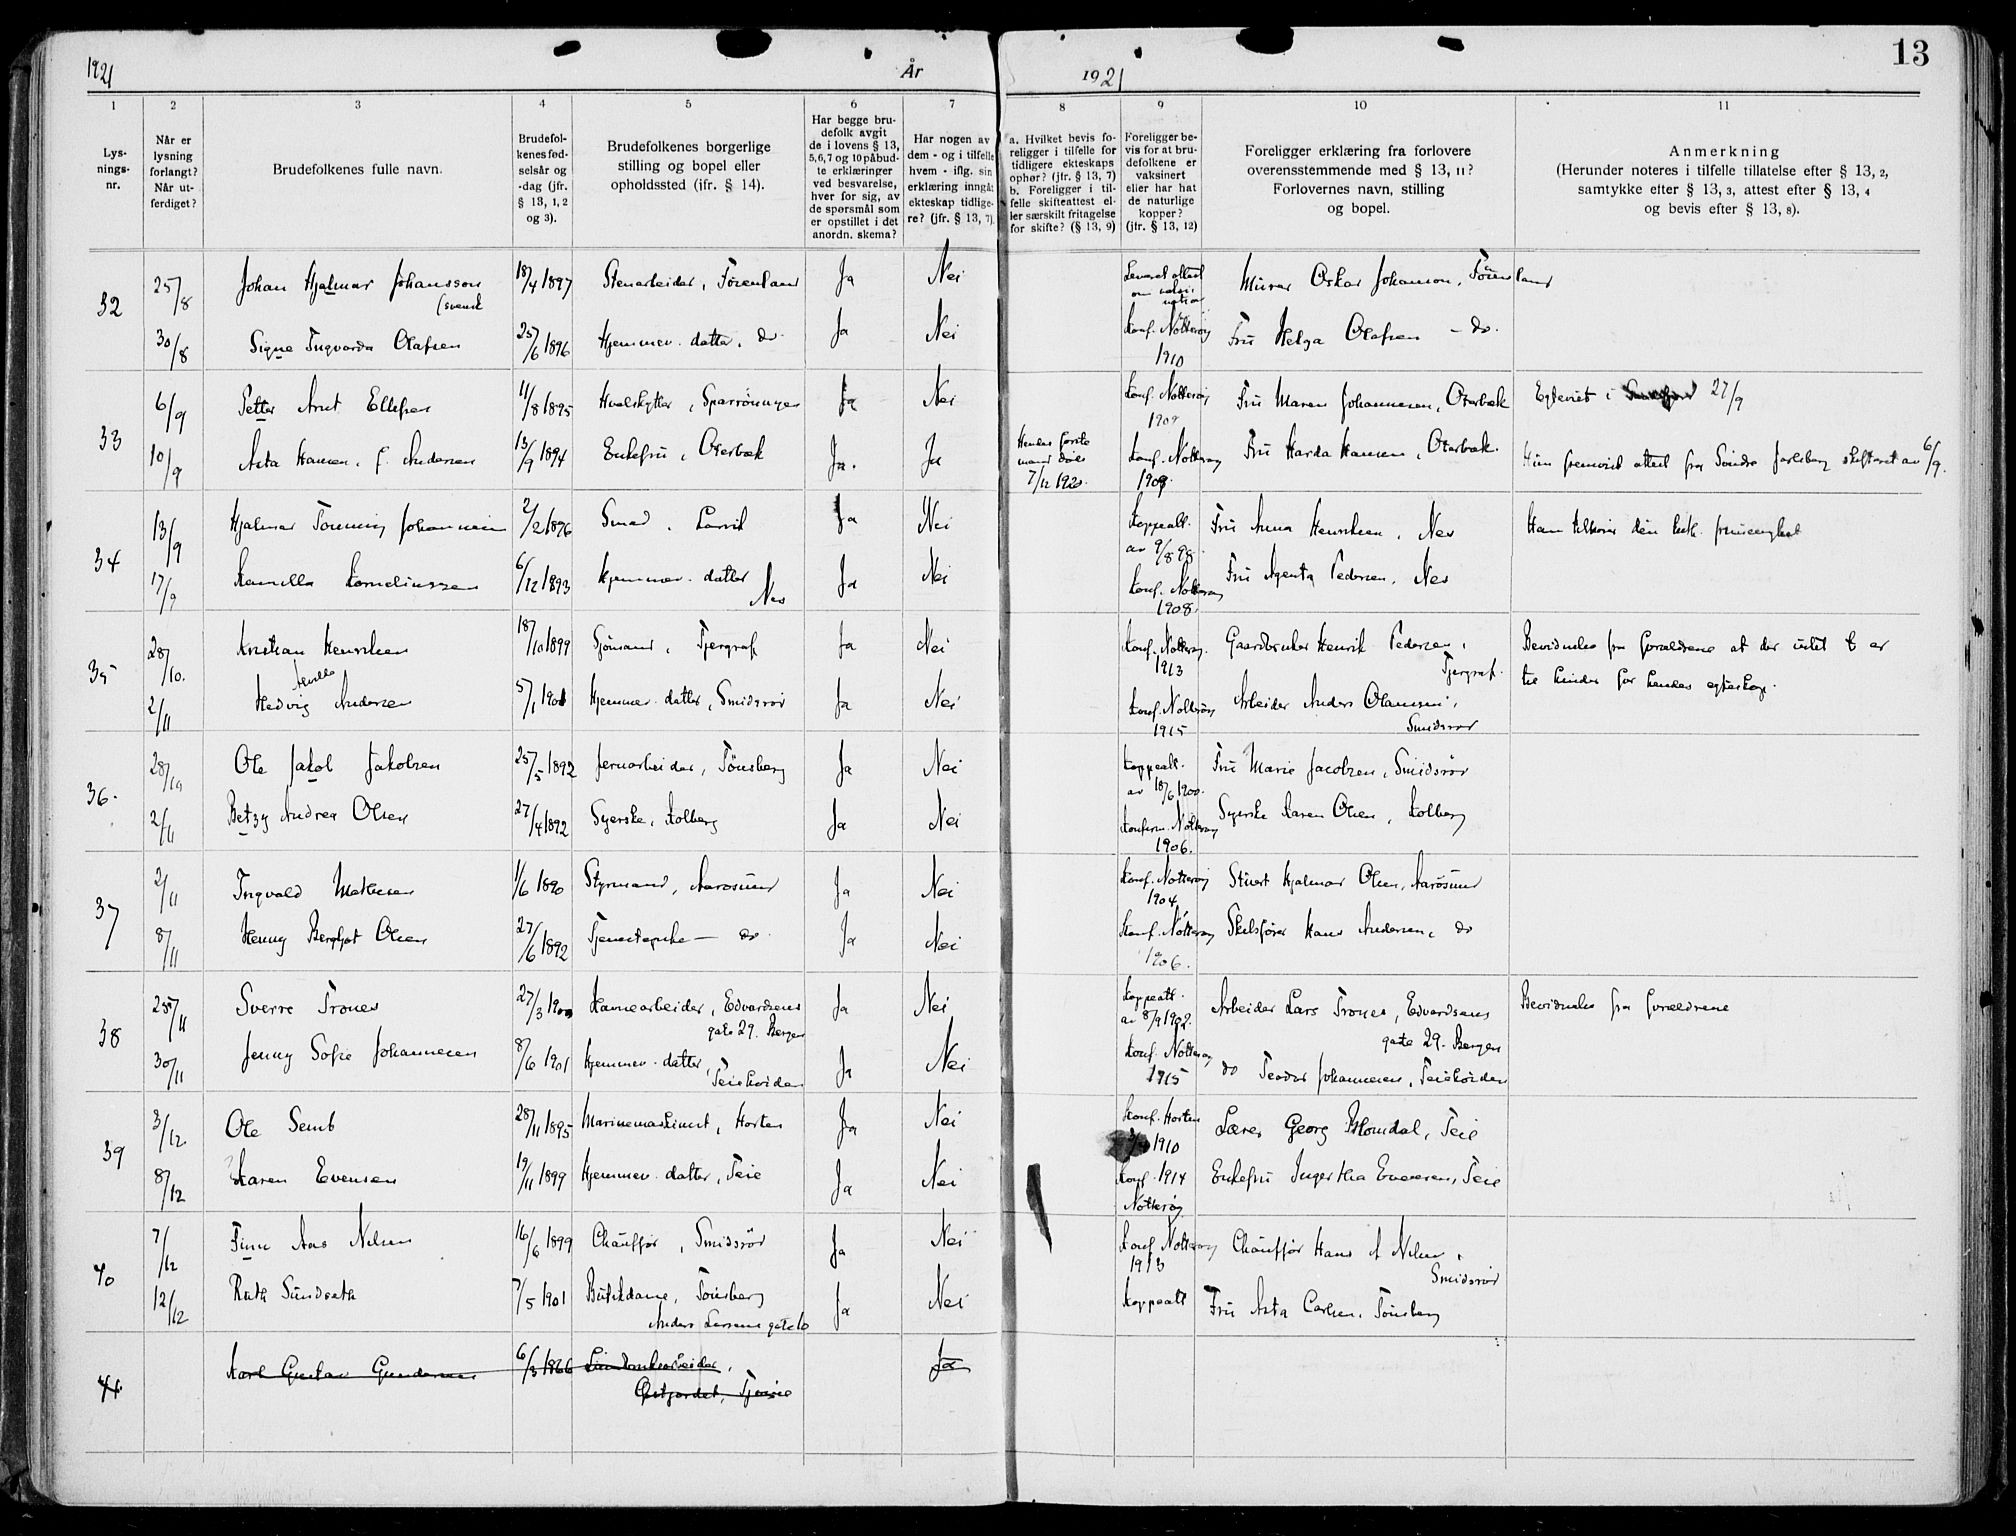 1921 År 1921 13
1 2 3 4 5 6 7 8 9 10 11
Lys-
nings-
nr.
Når er
lysning
forlangt?
Når ut-
ferdiget?
Brudefolkenes fulle navn.
Brudefol-
kenes fød-
selsår og
-dag (jfr.
§ 13, 1, 2
og 3).
Brudefolkenes borgerlige
stilling og bopel eller
opholdssted (jfr. § 14).
Har begge bru-
defolk avgit
de i lovens § 13,
5,6,7 og 10 påbud-
te erklæringer
ved besvarelse,
hver for sig, av
de spørsmål som
er opstillet i det
anordn. skema?
Har nogen av
dem - og i tilfelle
hvem - iflg. sin
erklæring inngåt
ekteskap tidlige-
re? (jfr. § 13, 7).
a. Hvilket bevis fo-
religger i tilfelle for
tidligere ekteskaps
ophør? (jfr. § 13, 7)
b. Foreligger i til-
felle skifteattest el-
ler særskilt fritagelse
for skifte? (§ 13, 9)
Foreligger be-
vis for at bru-
defolkene er
vaksinert
elier har hat
de naturlige
kopper?
(jfr. § 13, 12)
Foreligger erklæring fra forlovere
overensstemmende med § 13, 11?
Forlovernes navn, stilling
og bopel.
Anmerkning
(Herunder noteres i tilfelle tillatelse efter § 13, 2,
samtykke efter § 13, 3, attest efter § 13, 4
og bevis efter § 13, 8).
32 25/8 Johan Hjalmar Johansson 18/4 1897 Stenarbeider, Ja Nei Murer Oskar Johanson,
(svensk
30/8 Signe Ingvarda Olafsen 25/6 1896 Hjemmev. datter, do Ja Nei Konf. Nøtterøy Fru Helga Olafsen - do.
1910
33 6/9 Petter Arnt Ellefsen 11/8 1895 Hvalskytter, Ja Nei Konf. Nøtterøy Fru Maren Johannesen, Oterbæk Egteviet i 27/9
1909
10/9 Asta Hansen, f. Andersen 13/9 1894 Enkefru, Oterbæk Ja. Ja Hendes første Konf. Nøtterøy Fru Harda Hansen, Oterbæk. Hun fremvist attest fra Søndre Jarlsberg skifteret av 6/9.
mand døde
7/12 1920. 1909.
34 13/9 Hjalmar Johannesen 2/2 1896 Smed, Larvik Ja Nei Koppeatt. Fru Anna Henriksen, Nes Ham tilhører den luth. frimenighet
av 9/8 98.
17/9 Kamilla Korneliussen 6/12 1893 Hjemmev. datter Ja Nei Konf. Nøtterøy Fru Agenta Pedersen, Nes
Nes 1908.
35 28/10. Kristian Henriksen 18/10 1899 Sjømand, Tjergraf Ja Nei Konf. Nøtterøy. Gaardbruker Henrik Pedersen, Bevidnelse fra forældrene at der intet er
1913 Tjergraf. til hinder for hendes egteskap.
2/11 Hedvig Andersen 5/1 1901 Hjemmev. datter, Smidsrød Ja Nei Konf. Nøtterøy Arbeider Anders Olaussen,
1915 Smidsrød
36. 28/10 Ole Jakob Jakobsen 25/5 1892 Jernarbeider, Tønsberg Ja Nei Koppeatt. Fru Marie Jacobsen, Smidsrød
av 18/6 1900.
2/11 Betzy Andrea Olsen 27/4 1892 Syerske, Kolberg Ja Nei Konfirm. Nøtterøy Syerske Karen Olsen, Kolberg
1906.
37 2/11 Ingvald Mathisen 1/6 1890 Styrmand, Aarøsund Ja Nei Konf. Nøtterøy Stuert Hjalmar Olsen, Aarøsund
1904
8/11 Henny Bergljot Olsen 27/6 1892 Tjenestepike - do. Ja Nei Konf. Nøtterøy Skibsfører Hans Andersen, do
1906.
38 25/11 Sverre Trones 27/3 1900 Havnearbeider, Edvardsens Ja Nei Koppeatt. Arbeider Lars Trones, Edvardsens Bevidnelse fra forældrene
gate 29. Bergen av 8/9 1902. gate 29. Bergen
30/11 Jenny Sofie Johannesen 8/6 1901 Hjemmev. datter, Ja Nei Konf. Nøtterøy do Teodor Johannesen, Teiehøiden
Teiehøiden 1915
39 3/12. Ole Semb 28/11 1895 Marinemaskinist, Horten Ja Nei Konf. Horten Lærer Georg Blomdal, Teie
1910
8/12 Karen Evensen 19/11 1899 Hjemmev. datter, Teie Ja Nei Konf. 1914 Enkefru Ingertha Evensen, Teie
Nøtterøy
40 7/12 Finn Aas Nilsen 16/6 1899 Chauffør, Smidsrød Ja Nei Konf. Nøtterøy Chauffør Hans A Nilsen,
1913 Smidsrød
12/12 Ruth Sundseth 7/5 1901 Butikdame, Tønsberg Ja Nei Koppeatt Fru Asta Carlsen, Tønsberg
Anders Larsens gate 10
41. Karl Gustav Gundersen 6/3 1866 Ja